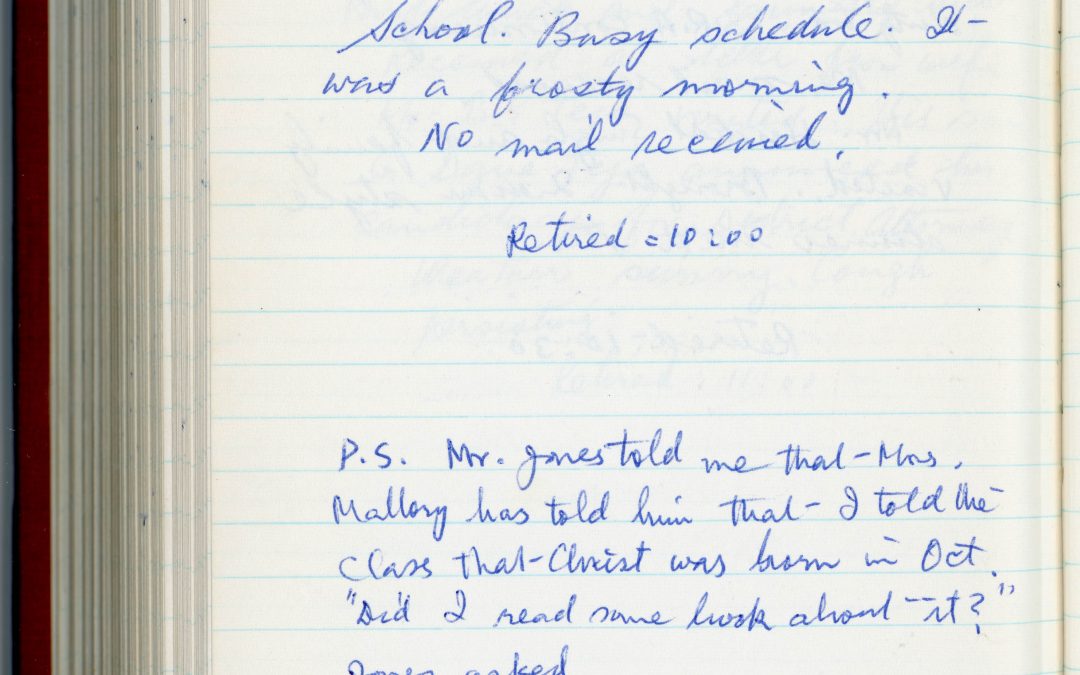 School. Busy schedule. It
was a frosty morning.
No mail received.
Retired = 10:00
P.S. Mr. Jones told me that Mrs.
Mallory has told him that I told the
class that Christ was born in Oct.
"Did I read some book about it?"
Jones asked